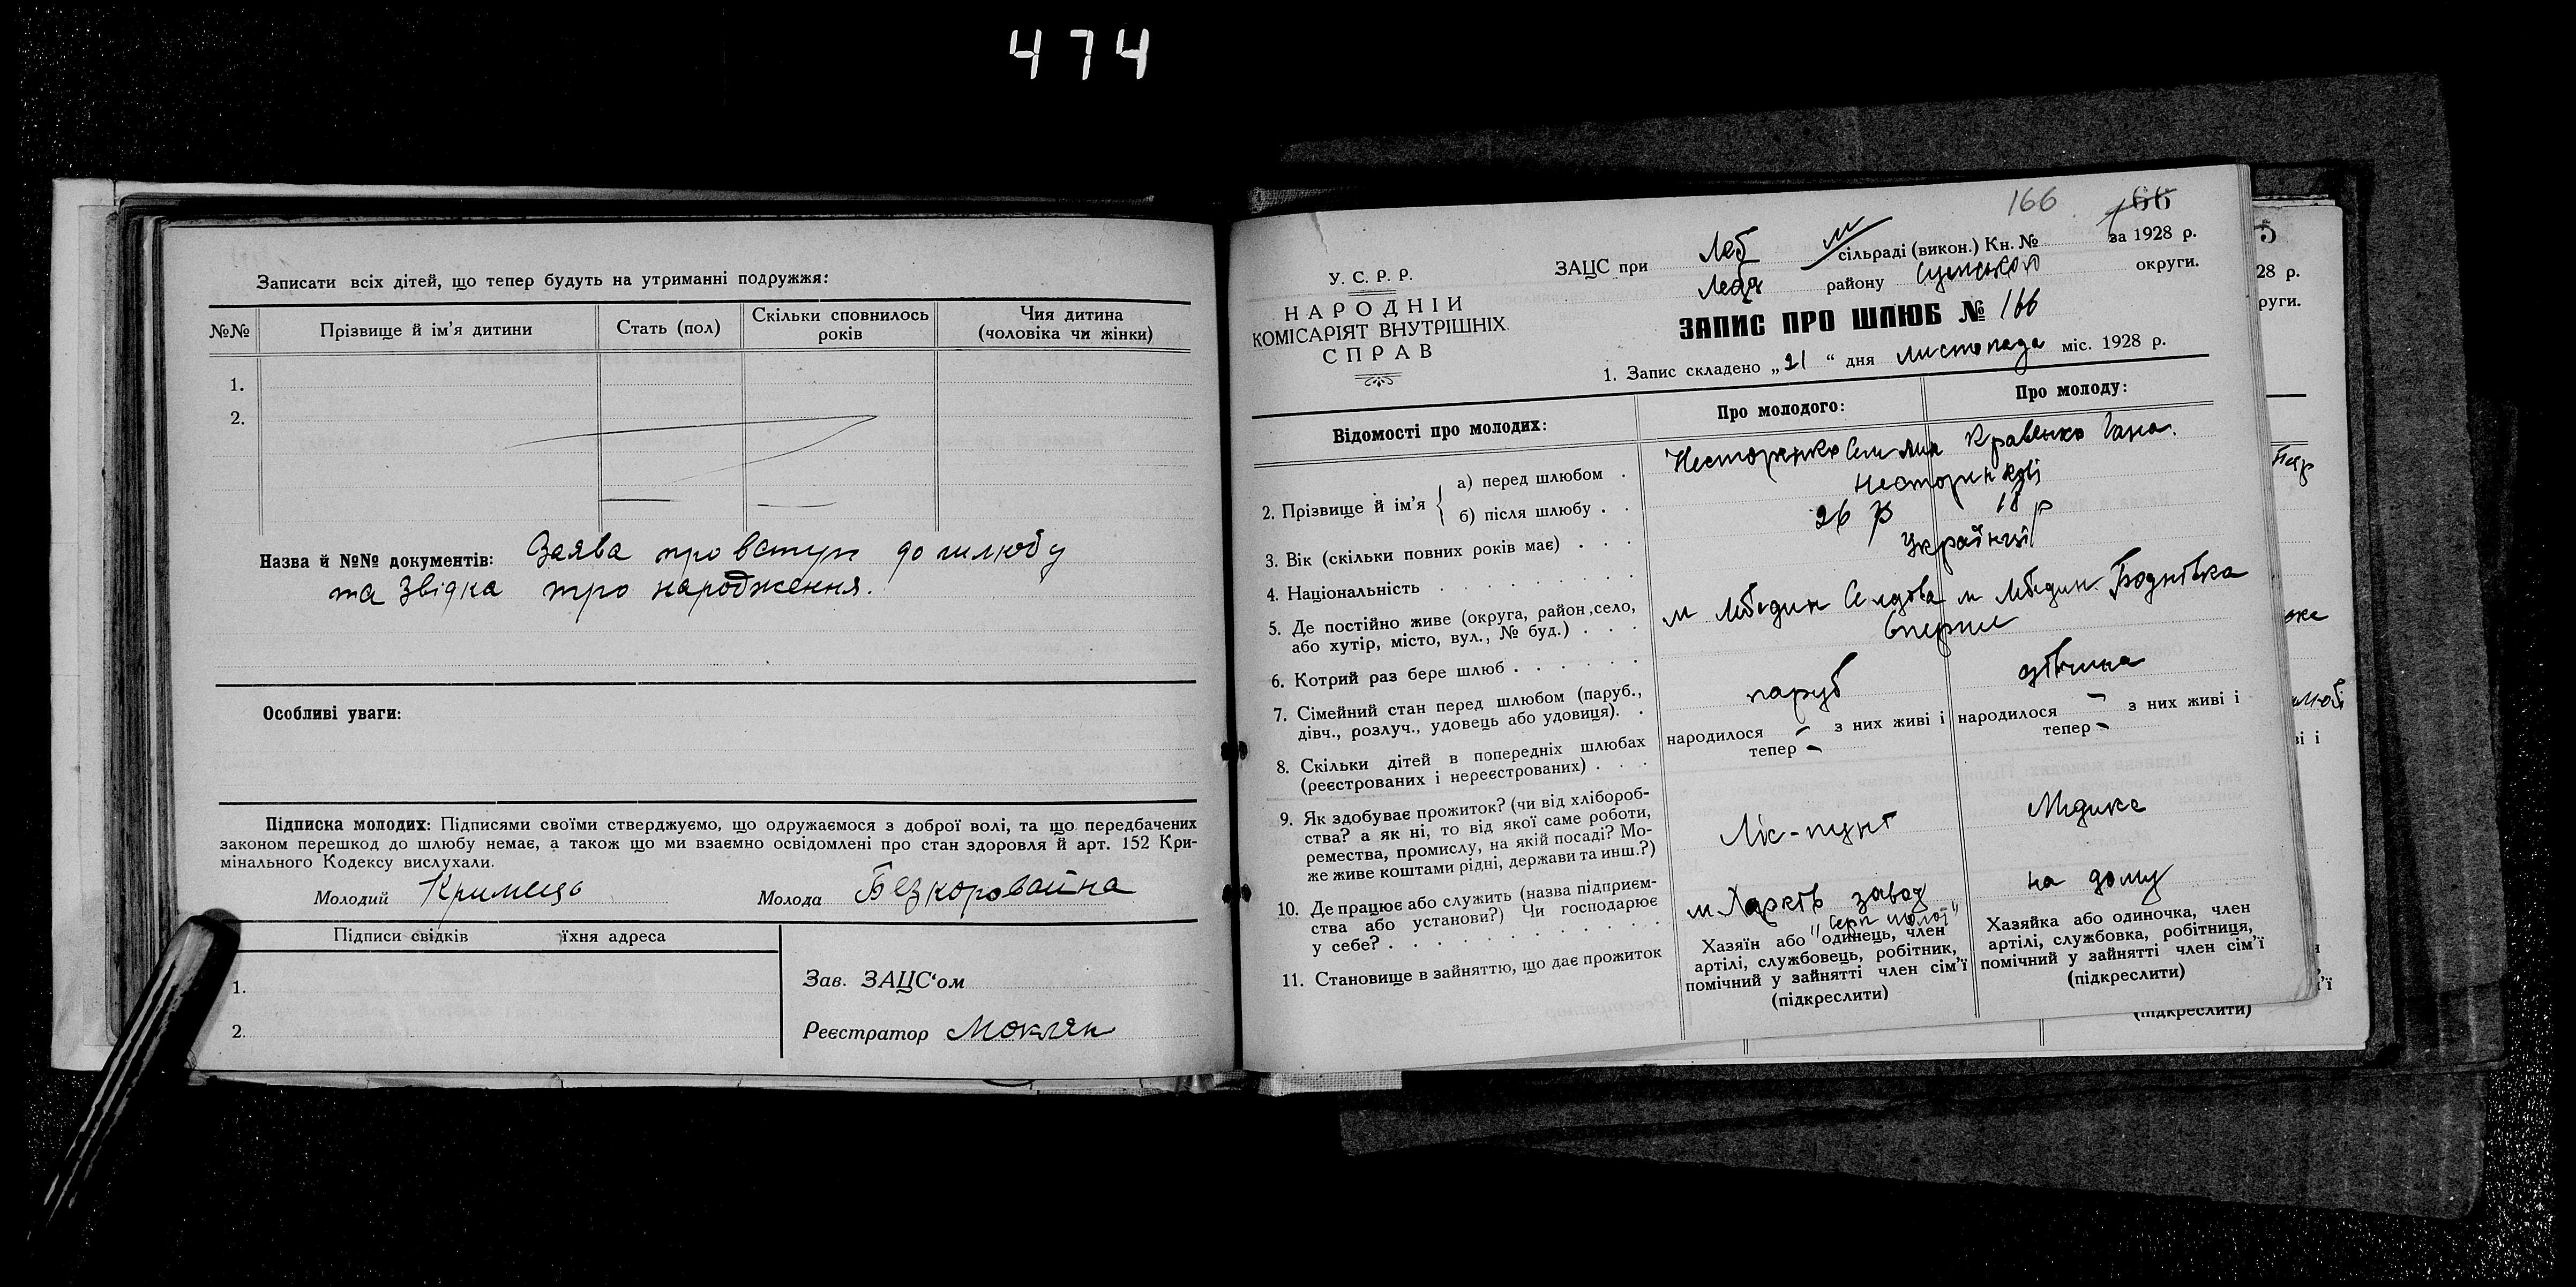 474
Записати всіх дітей, що тепер будуть на утриманні подружжя:
№№ Прізвище й ім'я дитини Стать (пол) Скільки сповнилось років Чия дитина (чоловіка чи жінки)
1.
2.
Назва й №№ документів: Заява про вступ до шлюбу
та звідка про народження.
Особливі уваги:
Підписка молодих: Підписями своїми стверджуємо, що одружаємося з доброї волі, та що передбачених
законом перешкод до шлюбу немає, а також що ми взаємно освідомлені про стан здоровля й арт. 152 Кри-
мінального Кодексу вислухали.
Молодий Кримець Молода Безкоровайна
Підписи свідків їхня адреса
1.
2.
Зав. ЗАЦС'ом
Реєстратор Моклян
166 166
У. С. Р. Р.
НАРОДНІЙ
КОМІСАРІЯТ ВНУТРІШНІХ
СПРАВ
ЗАЦС при Леб м сільраді (викон.) Кн. № за 1928 р.
Леб району Сумської округи.
ЗАПИС ПРО ШЛЮБ № 166
1. Запис складено „21“ дня листопада міс. 1928 р.
Відомості про молодих: Про молодого: Про молоду:
2. Прізвище й ім'я
а) перед шлюбом . Несторенко Кравенко Гана.
б) після шлюбу . .
3. Вік (скільки повних років має) . . . 26 р 18 р
4. Національність Українці
5. Де постійно живе (округа, район, село,
або хутір, місто, вул., № буд.) . . . м Лебедин м Лебедин Боднівка
6. Котрий раз бере шлюб . . . . . . вперше
7. Сімейний стан перед шлюбом (паруб.,
дівч., розлуч., удовець або удовиця). . паруб дівчина
8. Скільки дітей в попередніх шлюбах
(реєстрованих і нереєстрованих) . . .
народилося – з них живі і
тепер –
народилося – з них живі і
тепер –
9. Як здобуває прожиток? (чи від хлібороб-
ства? а як ні, то від якої саме роботи,
ремества, промислу, на якій посаді? Мо-
же живе коштами рідні, держави та инш.?)
10. Де працює або служить (назва підприєм-
ства або установи?) Чи господарює
у себе? . . . . . . . . . . .
м Харків завод
"Серп молот"
на дому
11. Становище в зайняттю, що дає прожиток
Хазяїн або одинець, член
артілі, службовець, робітник,
помічний у зайнятті член сім'ї
(підкреслити)
Хазяйка або одиночка, член
артілі, службовка, робітниця,
помічний у зайнятті член сім'ї
(підкреслити)
5
28 р.
руги.
(підкреслити)